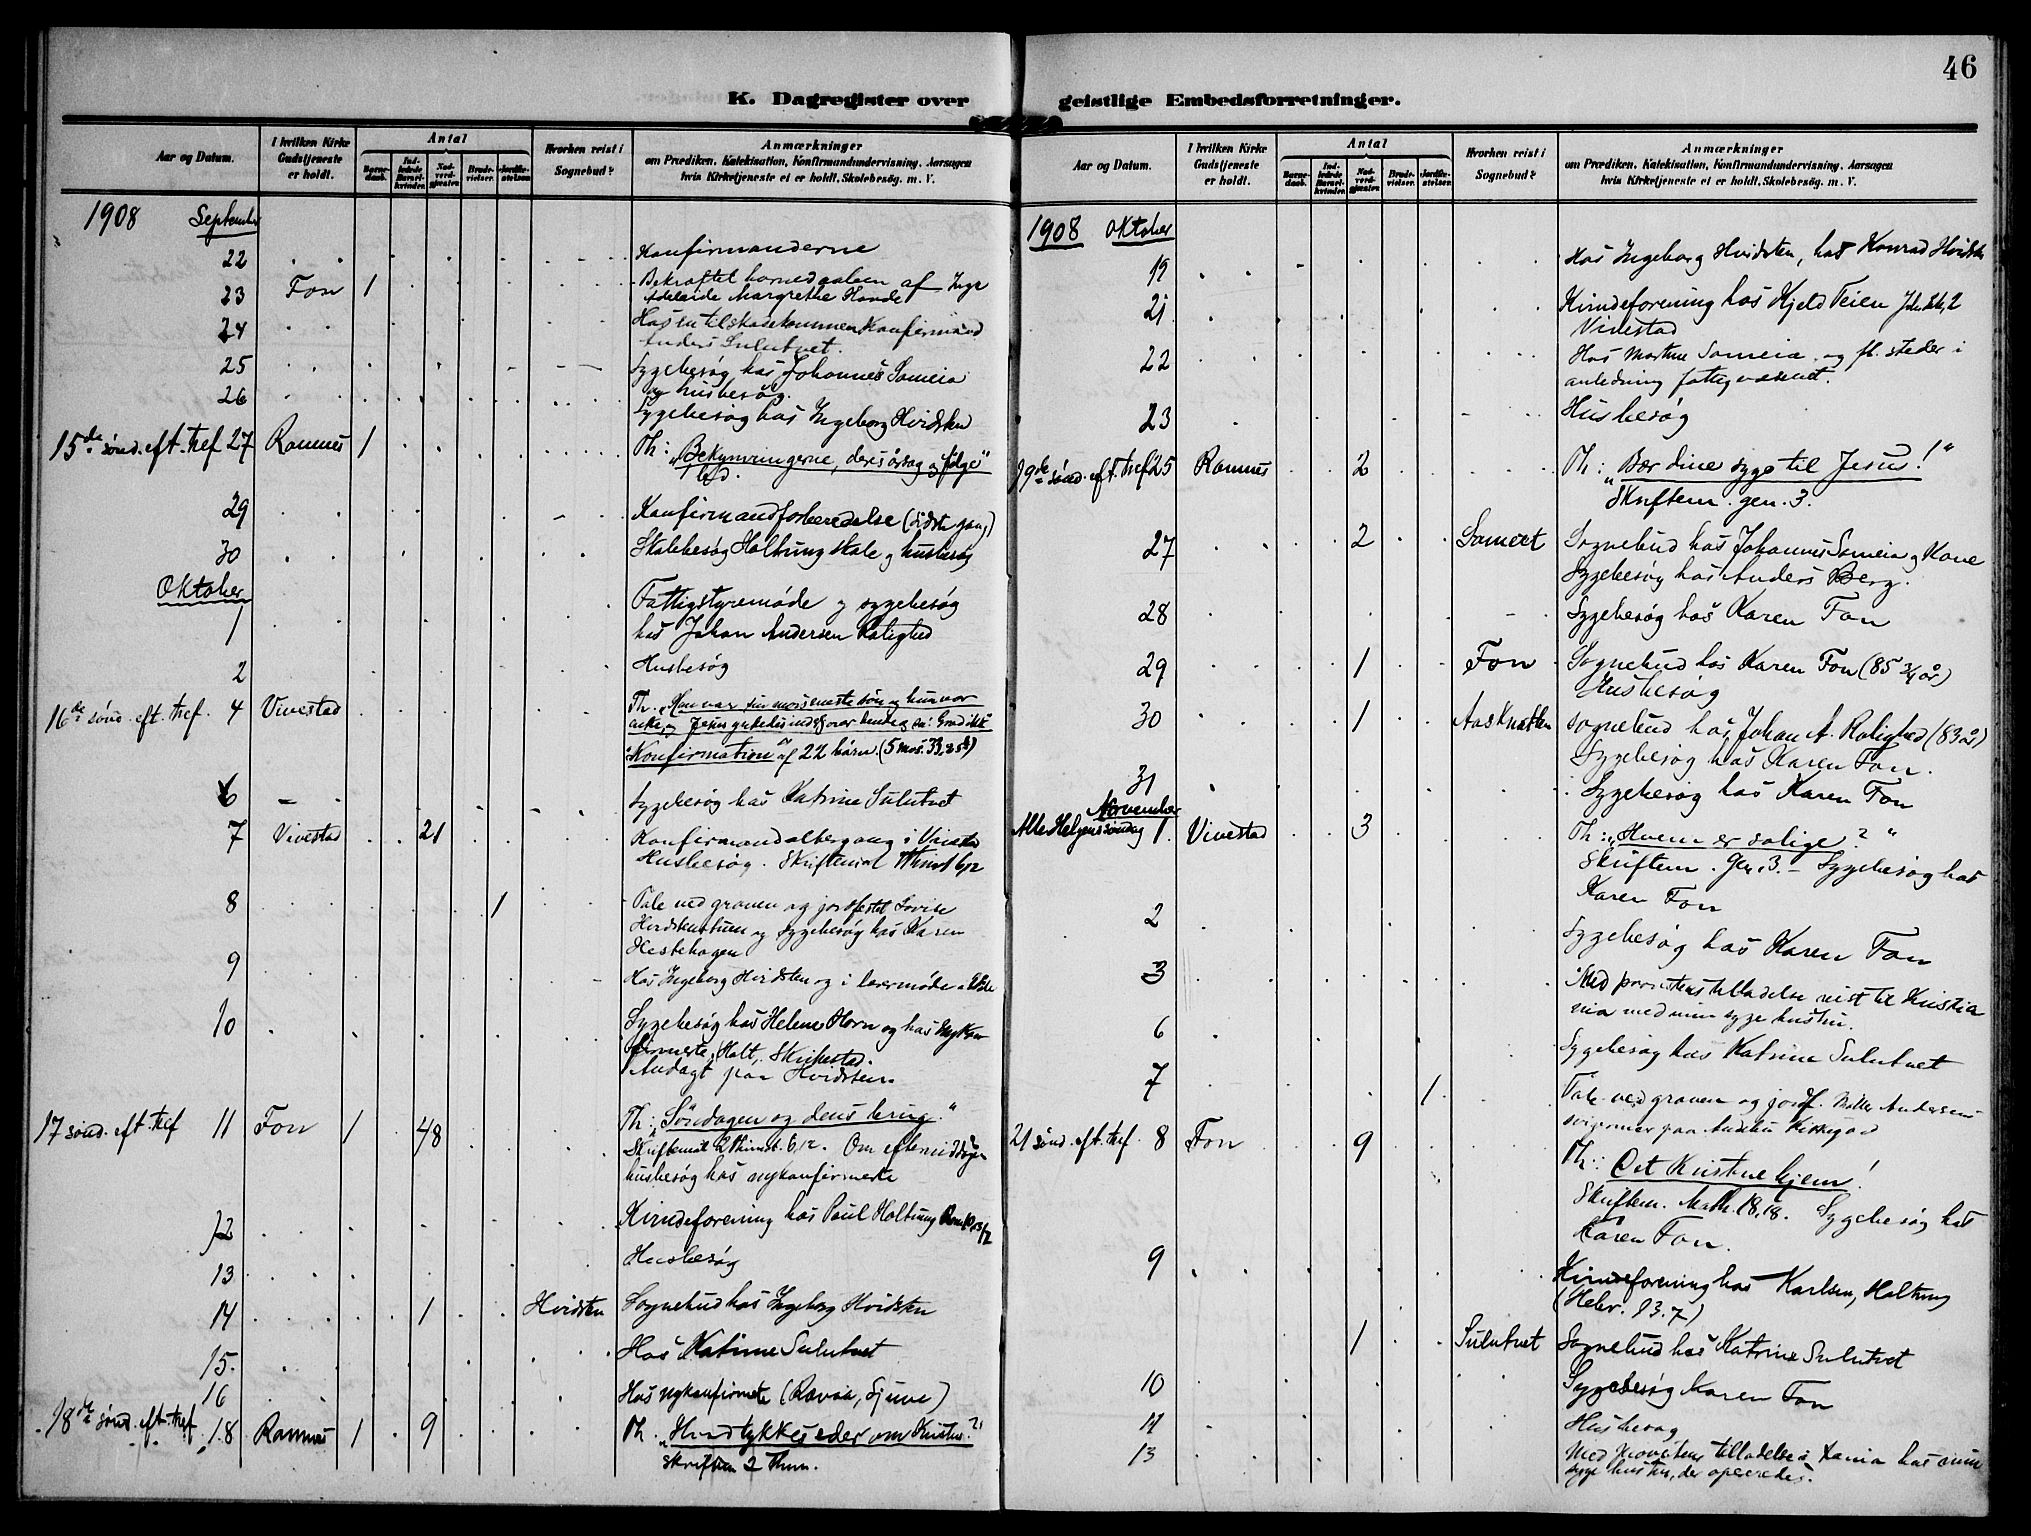 46
K. Dagregister over geistlige Embedsforretninger.
Aar og Datum. I hvilken Kirke Gudstjeneste er holdt. Antal Barnedaab. Indledede Barselkvinder. Nadverdgjæster. Brudevielser. Jordfæstelser. Hvorhen reist i Sognebud? Anmærkninger om Prædiken, Katekisation, Konfirmandundervisning, Aarsagen hvis Kirketjeneste ei er holdt, Skolebesøg, m. V.
1908 September
22 Konfirmanderne
23 Fon 1 Bekræftet barnedaaben af Inge
Adelaide Margrethe Hande
24 Hos en tilskadekommen Konfirmand
Anders Sulutvet.
25 Sygebesøg hos Johannes Someia
og husbesøg.
26 Sygebesøg hos Ingeborg Hvidsten
15de sønd. eft. tref 27 Ramnes 1 Th: "Bekymringerne, deres årsag og følge"
29 Konfirmandforberedelse (sidste gang)
30 Skolebesøg Holtung skole og husbesøg
Oktober
1 Fattigstyremøde og sygebesøg
hos Johan Andersen Rolighed
2 Husbesøg
16de sønd. eft. tref. 4 Vivestad Th. "Han var sin mors eneste søn og hun var
enke,
Konfirmation af 22 børn (5 Mos. 33,
6 Sygebesøg hos Katrine Sulutvet
7 Vivestad 21 Konfirmandaltergang i Vivestad
Husbesøg. Skriftemål 6,12
8 1 Tale ved graven og jordfestet Lovise
og sygebesøg hos Karen
Hestehagen
9 Hos Ingeborg Hvidsten og i
10 Sygebesøg hos Helene Horn og hos nykon
firmerte, Holt, Skikestad.
Andagt paa Hvidsten.
17 sønd. eft. tref 11 Fon 1 48 Th: "Søndagen og dens brug."
Skriftemål 6,12. Om eftermiddagen
husbesøg hos nykonfirmerte
12 Kvindeforening hos Paul Holtung Rom
13 Husbesøg
14 1 Hvidsten Sognebud hos Ingeborg Hvidsten
15. Hos Katrine Sulutvet
16 Hos nykonfirmerte (Ravaa, Gjune)
18de sønd. eft. tref 18 Ramnes 1 9 Th. "Hvad tykkes eder om Kristus?"
Skriftem 2
Aar og Datum. I hvilken Kirke Gudstjeneste er holdt. Antal Barnedaab. Indledede Barselkvinder. Nadverdgjæster. Brudevielser. Jordfæstelser. Hvorhen reist i Sognebud? Anmærkninger om Prædiken, Katekisation, Konfirmandundervisning, Aarsagen hvis Kirketjeneste ei er holdt, Skolebesøg, m. V.
1908 Oktober
19 Hos Ingeborg Hvidsten, hos Konrad Hvidsten
21 Kvindeforening hos Kjeld Teien
Vivestad
22 Hos Martine Someia og fl. steder i
anledning fattigvæsenet.
23 Husbesøg
19de sønd. eft. tref 25 Ramnes 2 Th: "Bær dine syge til Jesus!"
Skriftem. gen. 3.
27 2 Someet Sognebud hos Johannes Someia og Kone
Sygebesøg hos Anders Berg.
28 Sygebesøg hos Karen Fon
29 1 Fon Sognebud hos Karen Fon (85 3/4 år)
Husbesøg
30 1 Aasknatten Sognebud hos Johan A. Rolighed (83 år)
Sygebesøg hos Karen Fon.
31 Sygebesøg hos Karen Fon
November
Alle Helgens søndag 1. Vivestad 3 Th: "Hvem er salige?"
Skriftem. Gen. 3. - Sygebesøg hos
Karen Fon
2 Sygebesøg hos Karen Fon
3 Med provstens tilladelse reist til Kristia
nia med min syge hustru.
6 Sygebesøg hos Katrine Sulutvet
7 1 Tale ved graven og jordf. Andersens
svigermor paa Andebu Kirkegård
21 sønd. eft. tref. 8 Fon 9 Th: Det Kristne hjem!
Skriftem. Math. 18,18. Sygebesøg hos
Karen Fon.
9 Kvindeforening hos Karlsen, Holtung
(Hebr. 13.7)
1 Sulutvet Sognebud hos Katrine Sulutvet
10 Sygebesøg Karen Fon
11 Husbesøg
13 Med Provstens tilladelse i Kania hos min
syge hustru, der opereredes.